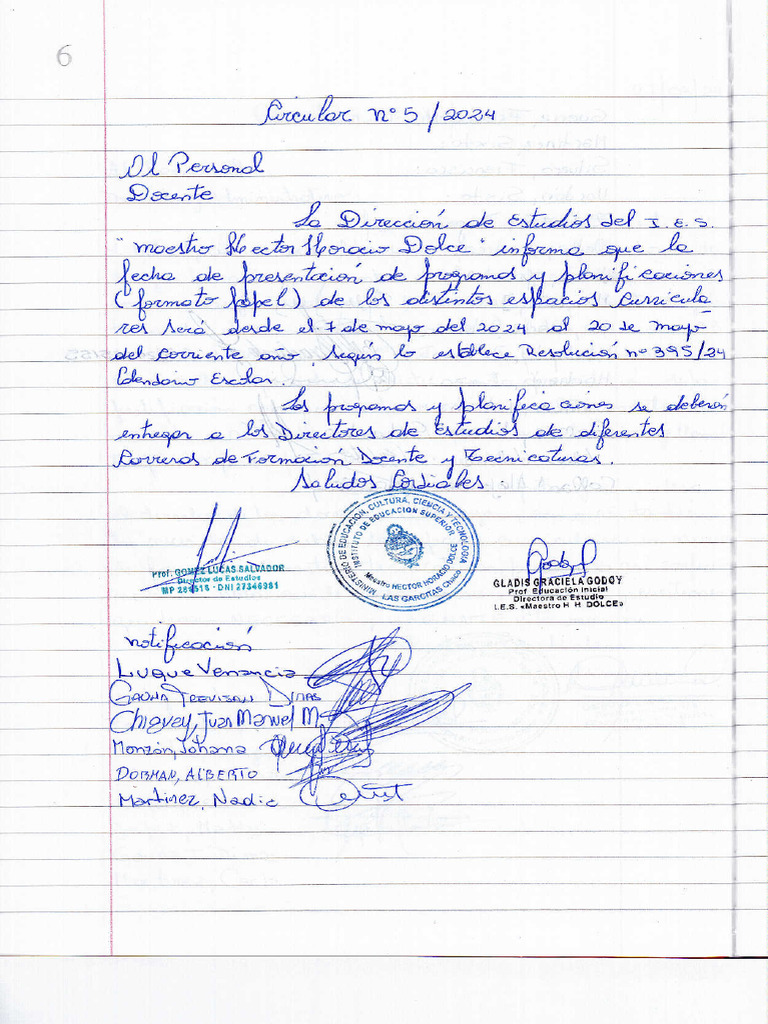 6
Circular n° 5 / 2024
Al Personal
Docente
La Dirección de Estudios del I.E.S.
"maestro Hector Horacio Dolce" informa que la
fecha de presentación de programas y planificaciones
(formato papel) de los distintos espacios curricula
res será desde el 7 de mayo del 2024 al 20 de mayo
del corriente año, según lo establece Resolución n° 395/24
Calendario Escolar.
Los programas y planificaciones se deberán
entregar a los Directores de Estudios de diferentes
Carreras de Formación Docente y Tecnicaturas.
Saludos Cordiales
MINISTERIO DE EDUCACION, CULTURA, CIENCIA Y TECNOLOGIA
INSTITUTO DE EDUCACION SUPERIOR
Maestro HECTOR HORACIO DOLCE
LAS GARCITAS Chaco
Prof. GOMEZ LUCAS SALVADOR
Director de Estudios
DNI 27346981
GLADIS GRACIELA GODOY
Prof. Educación Inicial
Directora de Estudio
I.E.S. «Maestro H. H. DOLCE»
notificación
Luque Venancia
Gauna Trevisan
Juan Manuel M.
Monzón, Johana
DORMAN, ALBERTO
Martinez, Nadia